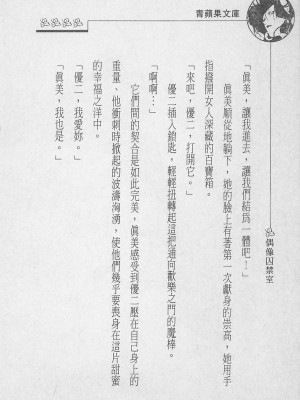 青蘋果文庫
偶像囚禁室
「眞美，讓我進去，讓我們結為一體吧！」
眞美順從地躺下，她的臉上有著第一次獻身的崇高，她用手
指撥開女人深藏的百寶箱。
「來吧，優二，打開它。」
優二插入鑰匙，輕輕扭轉起這把通向歡樂之門的魔棒。
「啊啊…」
它們間的契合是如此完美，眞美感受到優二壓在自己身上的
重量、他衝刺時掀起的波濤洶湧，使他們幾乎要喪身在這片甜蜜
的幸福之洋中。
「優二，我愛妳。」
「眞美，我也是。」